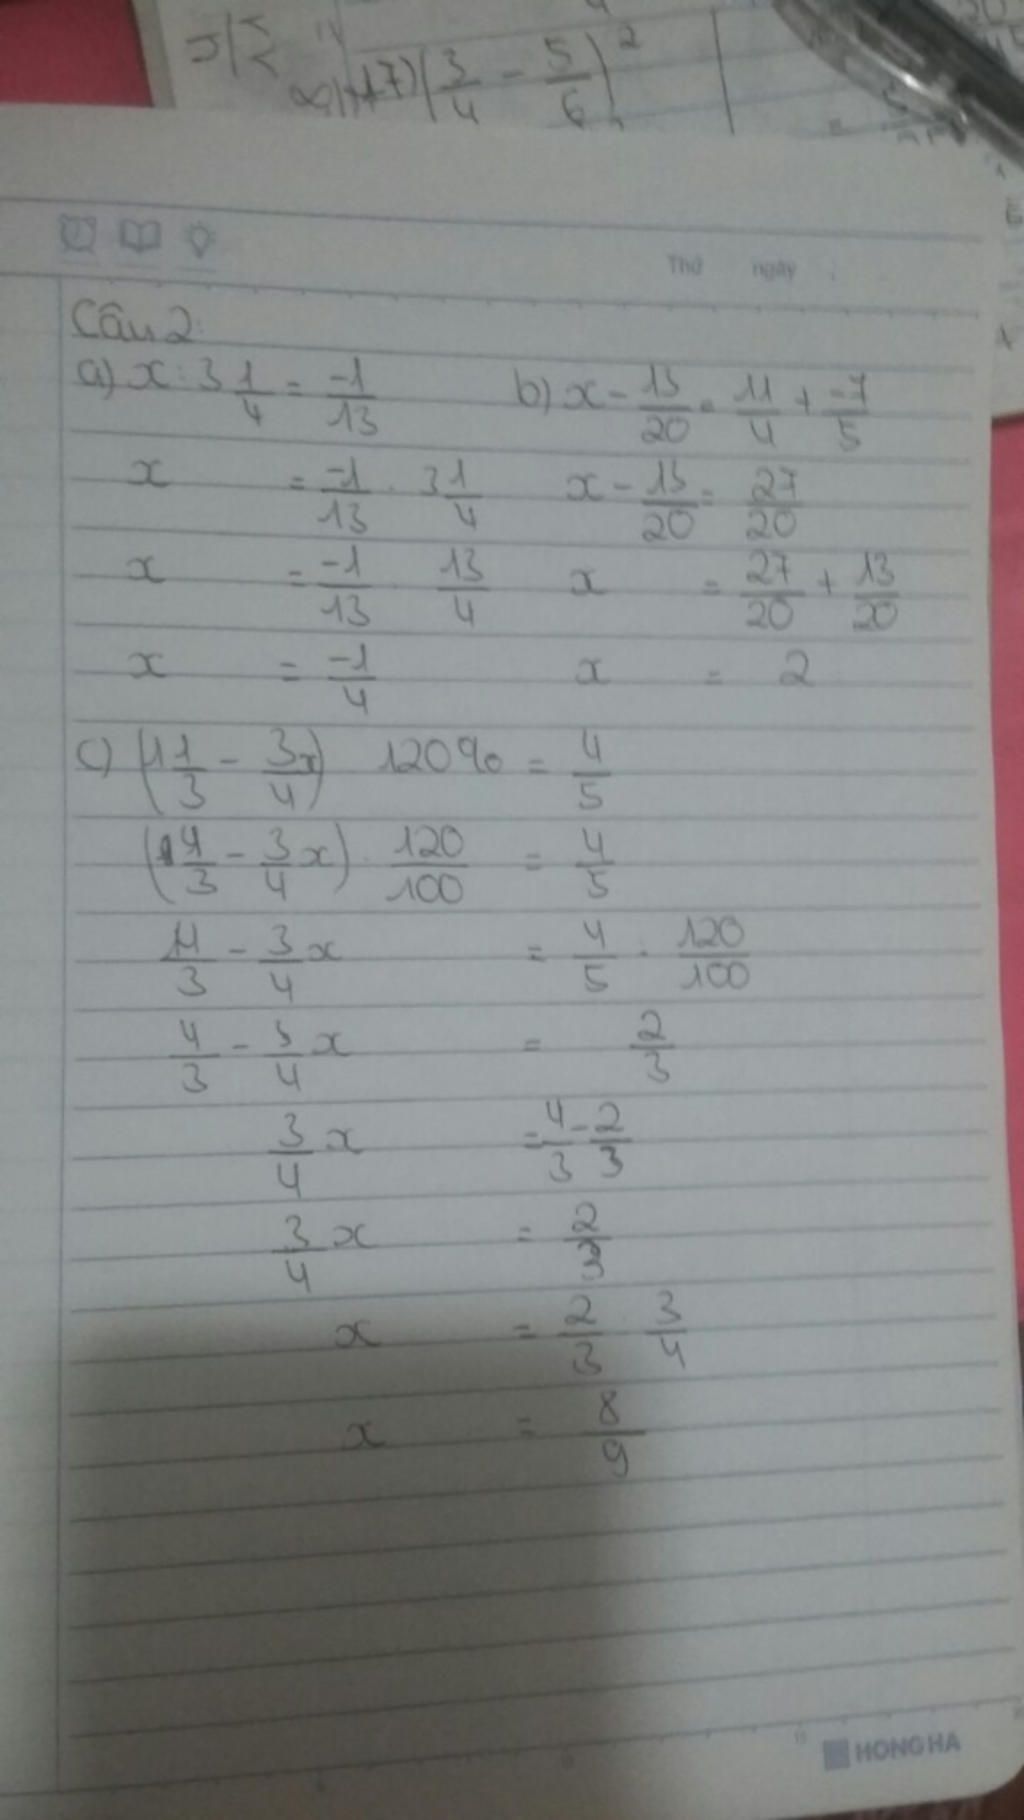 (3/4 - 5/6)²
Thứ ngày
Câu 2:
a) x : 3 1/4 = -1/13
x = -1/13 . 3 1/4
x = -1/13 . 13/4
x = -1/4
b) x - 13/20 = 11/4 + -7/5
x - 13/20 = 27/20
x = 27/20 + 13/20
x = 2
c) (1 1/3 - 3/4 x) 120% = 4/5
(4/3 - 3/4 x) . 120/100 = 4/5
4/3 - 3/4 x = 4/5 : 120/100
4/3 - 3/4 x = 2/3
3/4 x = 4/3 - 2/3
3/4 x = 2/3
x = 2/3 : 3/4
x = 8/9
HONG HA